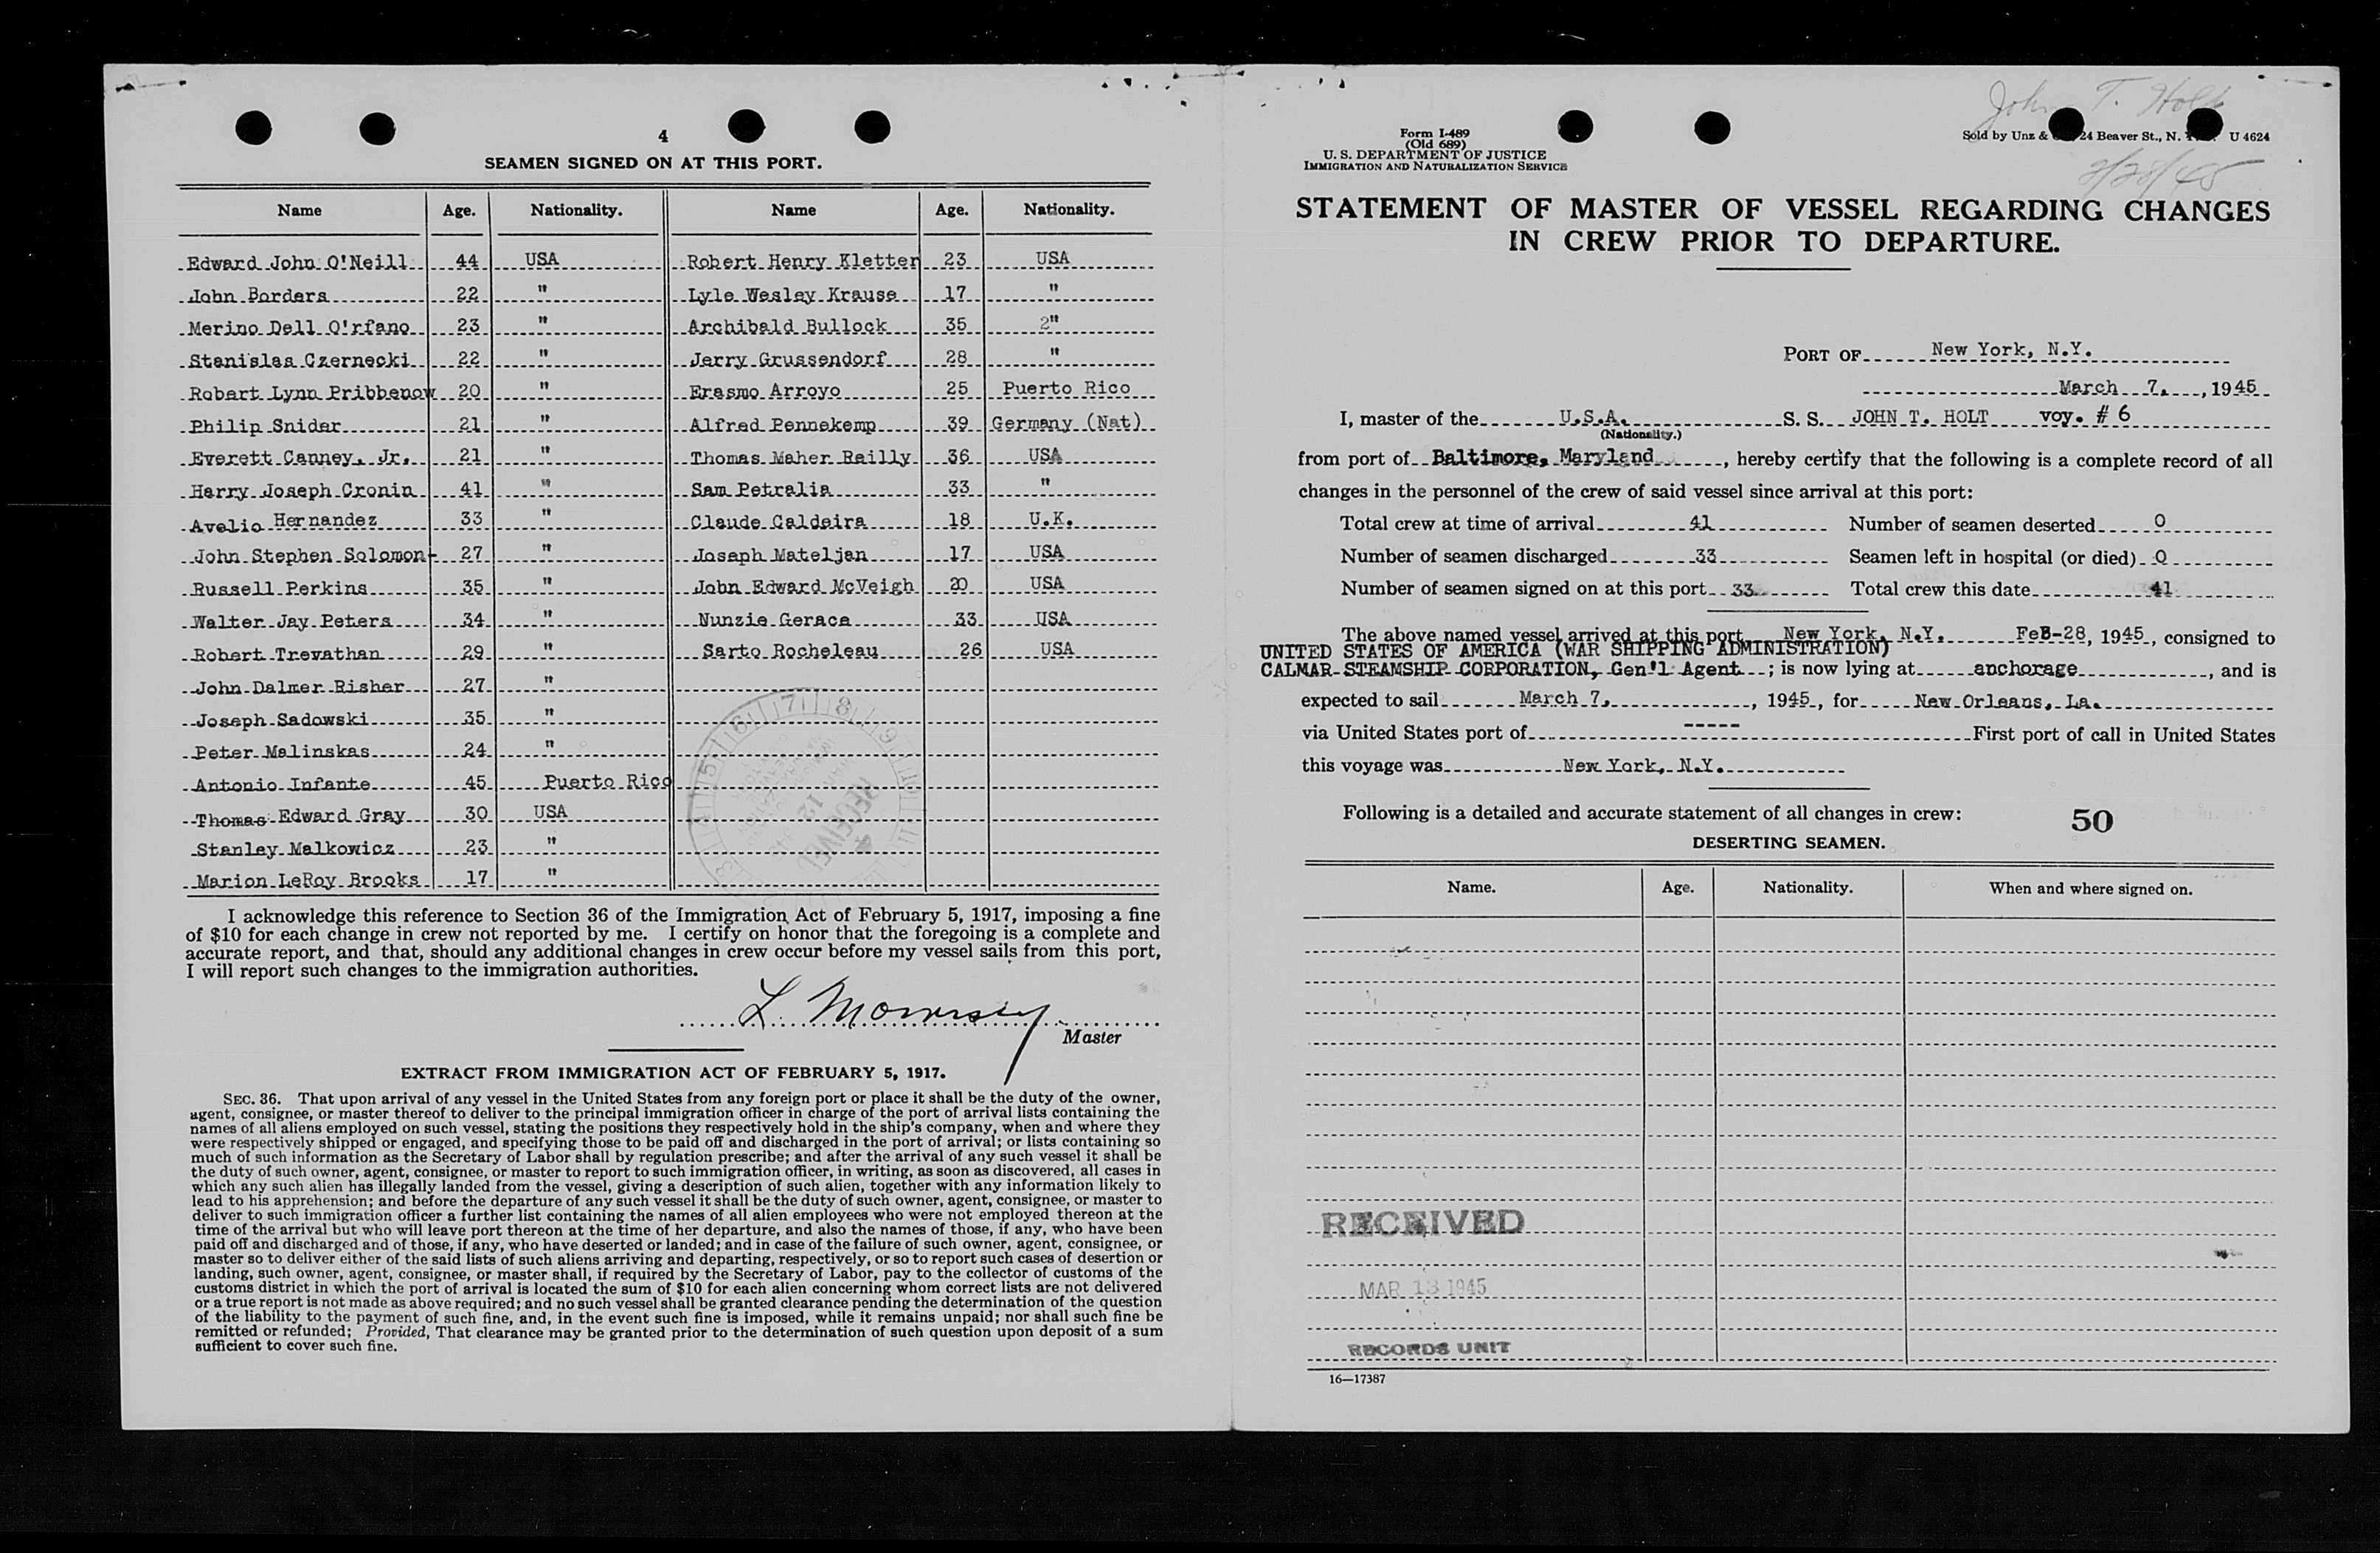 4
SEAMEN SIGNED ON AT THIS PORT.
Name Age. Nationality. Name Age. Nationality.
Edward John O'Neill 44 USA Robert Henry Kletter 23 USA
John Borders 22 " Lyle Wesley Krause 17 "
Merino Dell O'rfano 23 " Archibald Bullock 35 2"
Stanislas Czernecki 22 " Jerry Grussendorf 28 "
Robert Lynn Pribbenow 20 " Erasmo Arroyo 25 Puerto Rico
Philip Snider 21 " Alfred Pennekemp 39 Germany (Nat)
Everett Canney, Jr. 21 " Thomas Maher Reilly 36 USA
Harry Joseph Cronin 41 " Sam Petralia 33 "
Avelio Hernandez 33 " Claude Caldeira 18 U.K.
John Stephen Solomon 27 " Joseph Mateljan 17 USA
Russell Perkins 35 " John Edward McVeigh 20 USA
Walter Jay Peters 34 " Nunzie Gerace 33 USA
Robert Trevathan 29 " Sarto Rocheleau 26 USA
John Dalmer Risher 27 "
Joseph Sadowski 35 "
Peter Malinskas 24 "
Antonio Infante 45 Puerto Rico
Thomas Edward Gray 30 USA
Stanley Malkowicz 23 "
Marion LeRoy Brooks 17 "
RECEIVED
I acknowledge this reference to Section 36 of the Immigration Act of February 5, 1917, imposing a fine
of $10 for each change in crew not reported by me. I certify on honor that the foregoing is a complete and
accurate report, and that, should any additional changes in crew occur before my vessel sails from this port,
I will report such changes to the immigration authorities.
L. Morrissey
Master
EXTRACT FROM IMMIGRATION ACT OF FEBRUARY 5, 1917.
SEC. 36. That upon arrival of any vessel in the United States from any foreign port or place it shall be the duty of the owner,
agent, consignee, or master thereof to deliver to the principal immigration officer in charge of the port of arrival lists containing the
names of all aliens employed on such vessel, stating the positions they respectively hold in the ship's company, when and where they
were respectively shipped or engaged, and specifying those to be paid off and discharged in the port of arrival; or lists containing so
much of such information as the Secretary of Labor shall by regulation prescribe; and after the arrival of any such vessel it shall be
the duty of such owner, agent, consignee, or master to report to such immigration officer, in writing, as soon as discovered, all cases in
which any such alien has illegally landed from the vessel, giving a description of such alien, together with any information likely to
lead to his apprehension; and before the departure of any such vessel it shall be the duty of such owner, agent, consignee, or master to
deliver to such immigration officer a further list containing the names of all alien employees who were not employed thereon at the
time of the arrival but who will leave port thereon at the time of her departure, and also the names of those, if any, who have been
paid off and discharged and of those, if any, who have deserted or landed; and in case of the failure of such owner, agent, consignee, or
master so to deliver either of the said lists of such aliens arriving and departing, respectively, or so to report such cases of desertion or
landing, such owner, agent, consignee, or master shall, if required by the Secretary of Labor, pay to the collector of customs of the
customs district in which the port of arrival is located the sum of $10 for each alien concerning whom correct lists are not delivered
or a true report is not made as above required; and no such vessel shall be granted clearance pending the determination of the question
of the liability to the payment of such fine, and, in the event such fine is imposed, while it remains unpaid; nor shall such fine be
remitted or refunded; Provided, That clearance may be granted prior to the determination of such question upon deposit of a sum
sufficient to cover such fine.
John T. Holt
Form I-489
(Old 689)
U. S. DEPARTMENT OF JUSTICE
IMMIGRATION AND NATURALIZATION SERVICE
Sold by Unz & 24 Beaver St., N. U 4624
2/28/45
STATEMENT OF MASTER OF VESSEL REGARDING CHANGES
IN CREW PRIOR TO DEPARTURE.
PORT OF New York, N.Y.
March 7, , 1945
I, master of the U.S.A. S. S. JOHN T. HOLT voy. # 6
(Nationality.)
from port of Baltimore, Maryland , hereby certify that the following is a complete record of all
changes in the personnel of the crew of said vessel since arrival at this port:
Total crew at time of arrival 41 Number of seamen deserted 0
Number of seamen discharged 33 Seamen left in hospital (or died) 0
Number of seamen signed on at this port 33 Total crew this date 41
The above named vessel arrived at this port New York, N.Y. FeB-28, 1945, consigned to
UNITED STATES OF AMERICA (WAR SHIPPING ADMINISTRATION)
CALMAR STEAMSHIP CORPORATION, Gen'l Agent ; is now lying at anchorage , and is
expected to sail March 7, , 1945, for New Orleans, La.
via United States port of ----- First port of call in United States
this voyage was New York, N.Y.
Following is a detailed and accurate statement of all changes in crew: 50
DESERTING SEAMEN.
Name. Age. Nationality. When and where signed on.
RECEIVED
MAR 13 1945
RECORDS UNIT
16—17387